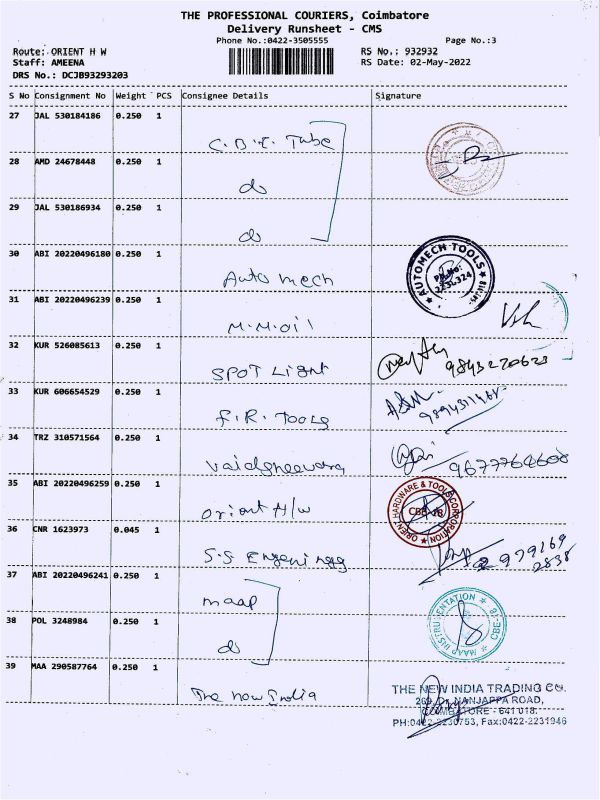 THE PROFESSIONAL COURIERS, Coimbatore
Delivery Runsheet - CMS
Phone No.:0422-3505555
Page No.:3
Route: ORIENT H W
RS No.: 932932
Staff: AMEENA
RS Date: 02-May-2022
DRS No.: DCJB93293203
S No Consignment No Weight PCS Consignee Details Signature
27 JAL 530184186 0.250 1
C.B.E. Tube
28 AMD 24678448 0.250 1
do
29 JAL 530186934 0.250 1
do
30 ABI 20220496180 0.250 1
Auto mech
AUTOMECH TOOLS
31 ABI 20220496239 0.250 1
M.M.oil
32 KUR 526085613 0.250 1
SPOT Light
9843270623
33 KUR 606654529 0.250 1
F.R. Tools
34 TRZ 310571564 0.250 1
9677764608
35 ABI 20220496259 0.250 1
Orient H/w
ORIENT HARDWARE & TOOLS CORPORATION
CBE-18
36 CNR 1623973 0.045 1
S.S Engeningg
37 ABI 20220496241 0.250 1
maap
38 POL 3248984 0.250 1
do
MAAP INSTRUMENTATION CBE-18
39 MAA 290587764 0.250 1
The new India
THE NEW INDIA TRADING CO.
269, Dr. NANJAPPA ROAD,
COIMBATORE - 641 018.
PH:0422-2230753, Fax:0422-2231946